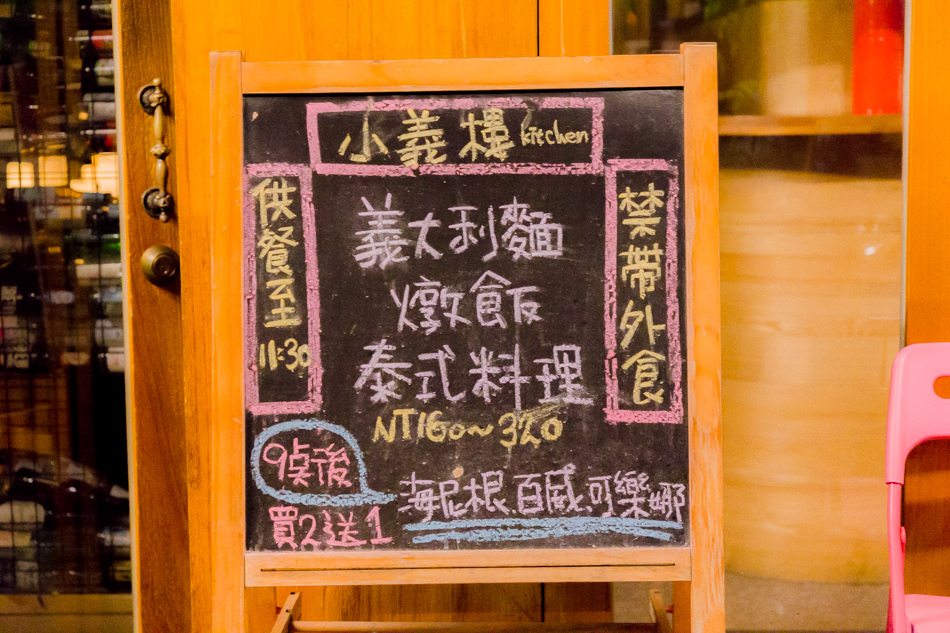 小義樓 kitchen
供餐至
11:30
義大利麵
燉飯
泰式料理
NT160~320
禁帶外食
9点後
買2送1
海尼根.百威.可樂娜